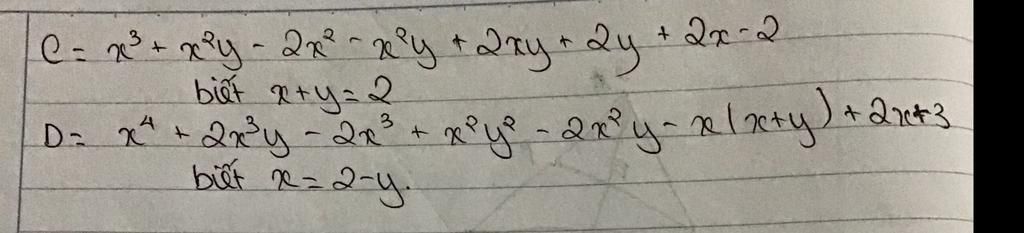 C = x³ + x²y - 2x² - x²y + 2xy + 2y + 2x - 2
biết x+y = 2
D = x⁴ + 2x³y - 2x³ + x²y² - 2x²y - x(x+y) + 2x+3
biết x = 2-y.